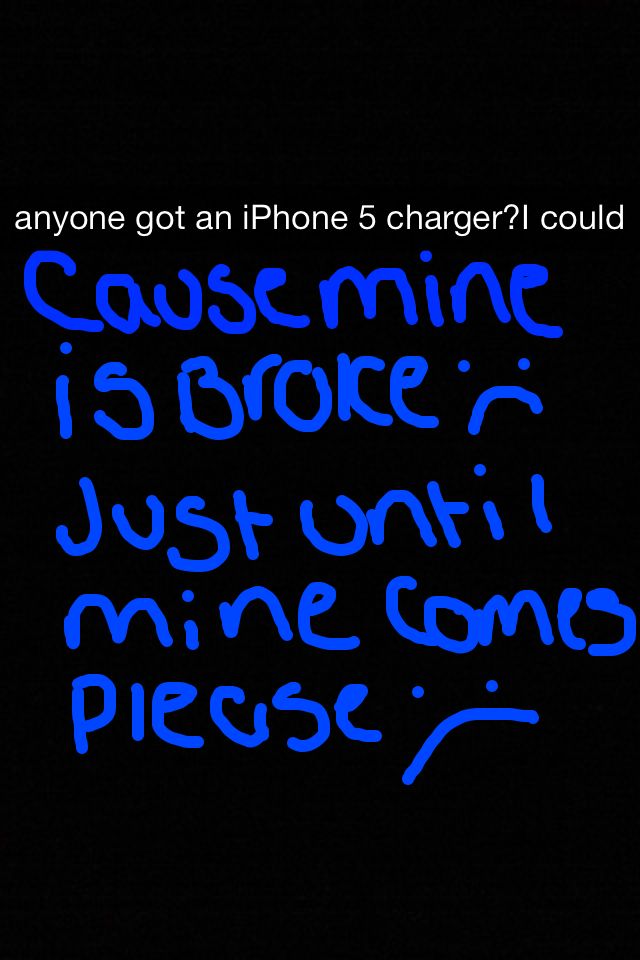 anyone got an iPhone 5 charger?I could
Cause mine
is Broke
Just until
mine comes
please